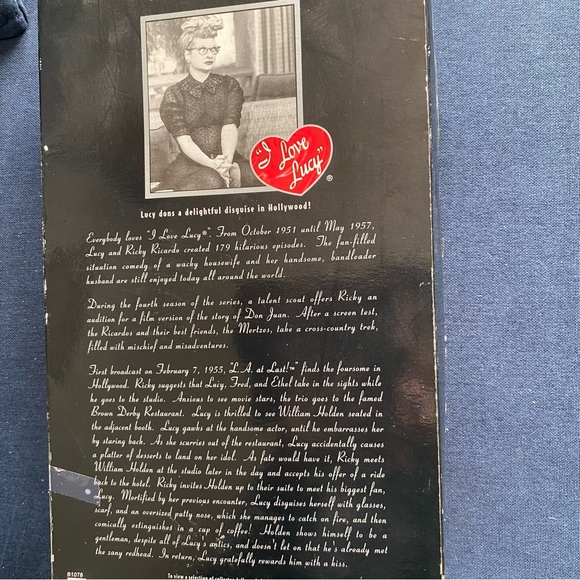 "I Love
Lucy"
®
Lucy dons a delightful disguise in Hollywood!
Everybody loves "I Love Lucy®". From October 1951 until May 1957,
Lucy and Ricky Ricardo created 179 hilarious episodes. The fun-filled
situation comedy of a wacky housewife and her handsome, bandleader
husband are still enjoyed today all around the world.
During the fourth season of the series, a talent scout offers Ricky an
audition for a film version of the story of Don Juan. After a screen test,
the Ricardos and their best friends, the Mertzes, take a cross-country trek,
filled with mischief and misadventures.
First broadcast on February 7, 1955, "L.A. at Last!™" finds the foursome in
Hollywood. Ricky suggests that Lucy, Fred, and Ethel take in the sights while
he goes to the studio. Anxious to see movie stars, the trio goes to the famed
Brown Derby Restaurant. Lucy is thrilled to see William Holden seated in
the adjacent booth. Lucy gawks at the handsome actor, until he embarrasses her
by staring back. As she scurries out of the restaurant, Lucy accidentally causes
a platter of desserts to land on her idol. As fate would have it, Ricky meets
William Holden at the studio later in the day and accepts his offer of a ride
back to the hotel. Ricky invites Holden up to their suite to meet his biggest fan,
Lucy. Mortified by her previous encounter, Lucy disguises herself with glasses,
scarf, and an oversized putty nose, which she manages to catch on fire, and then
comically extinguishes in a cup of coffee! Holden shows himself to be a
gentleman, despite all of Lucy's antics, and doesn't let on that he's already met
the zany redhead. In return, Lucy gratefully rewards him with a kiss.
B1078
To view a selection of